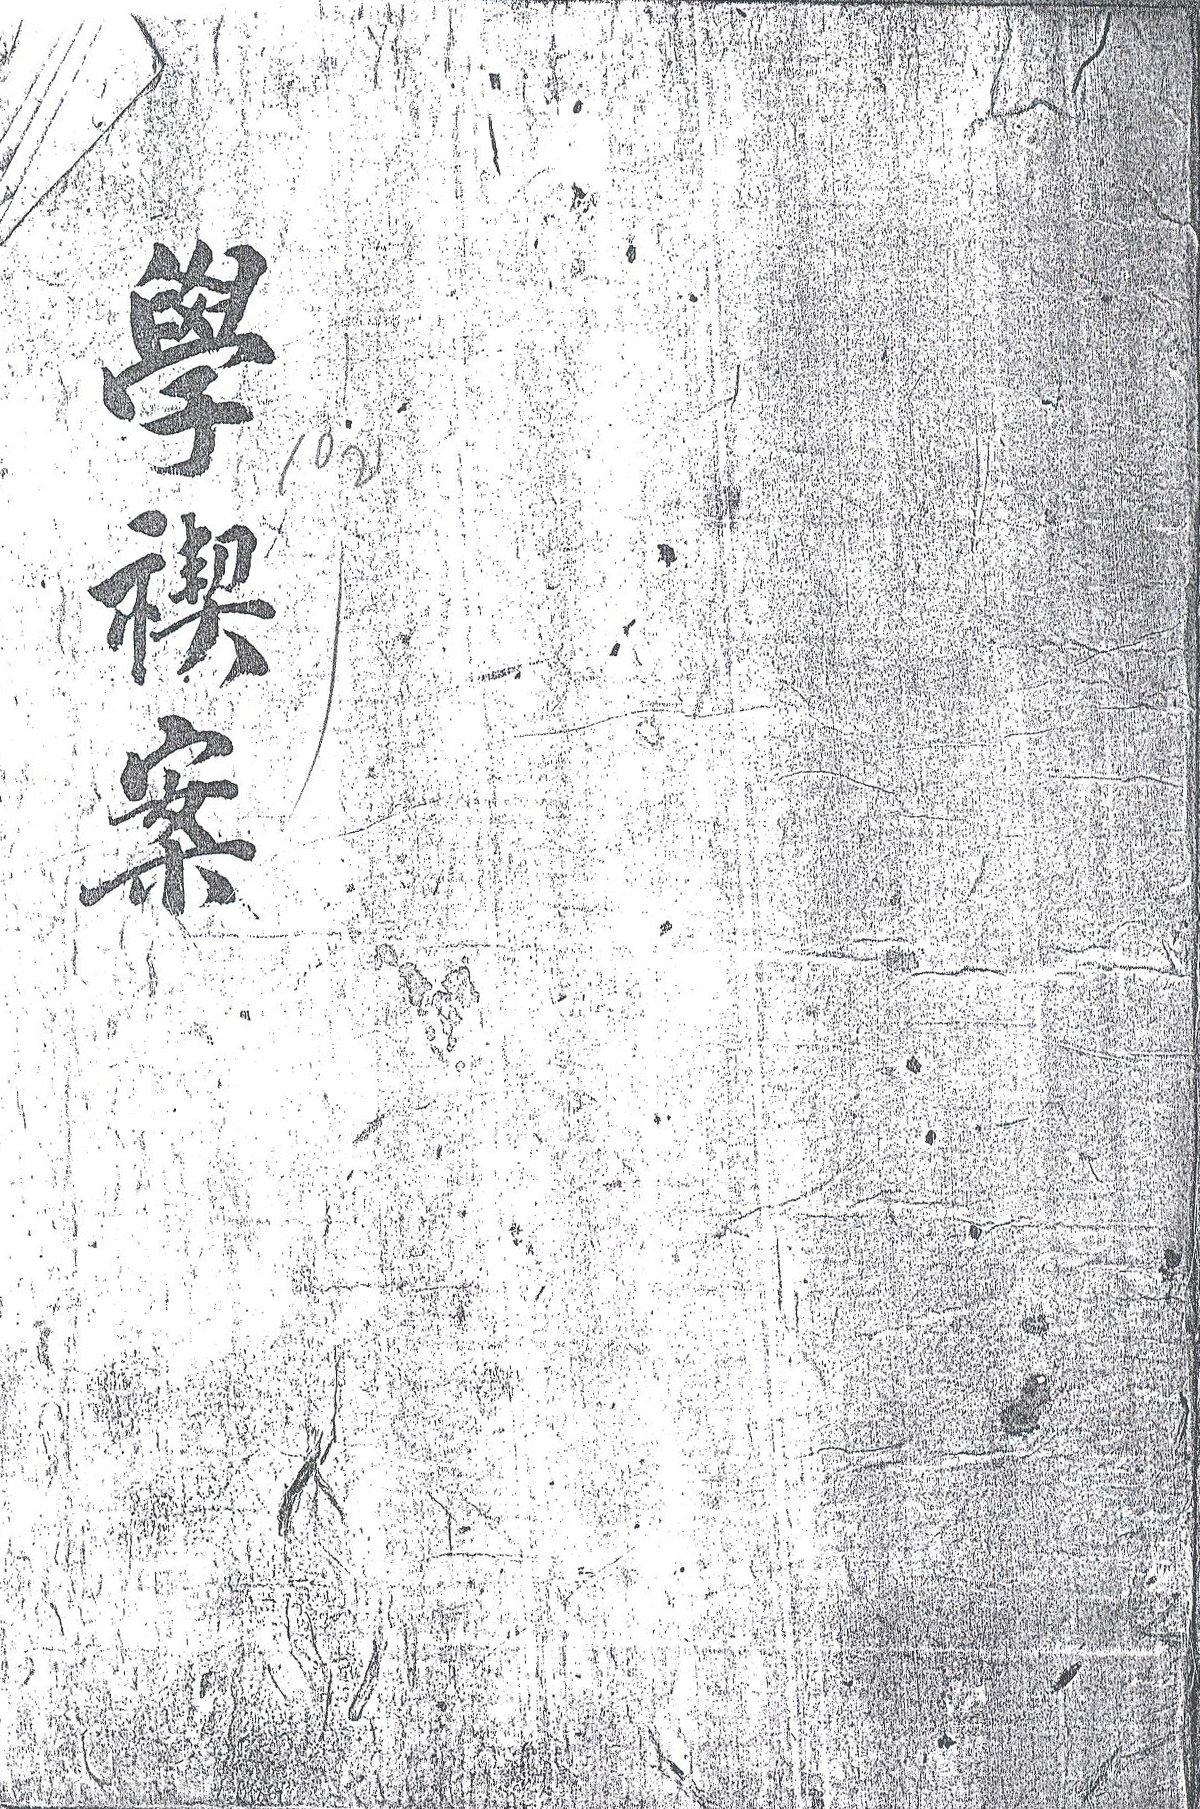 學禊案
102